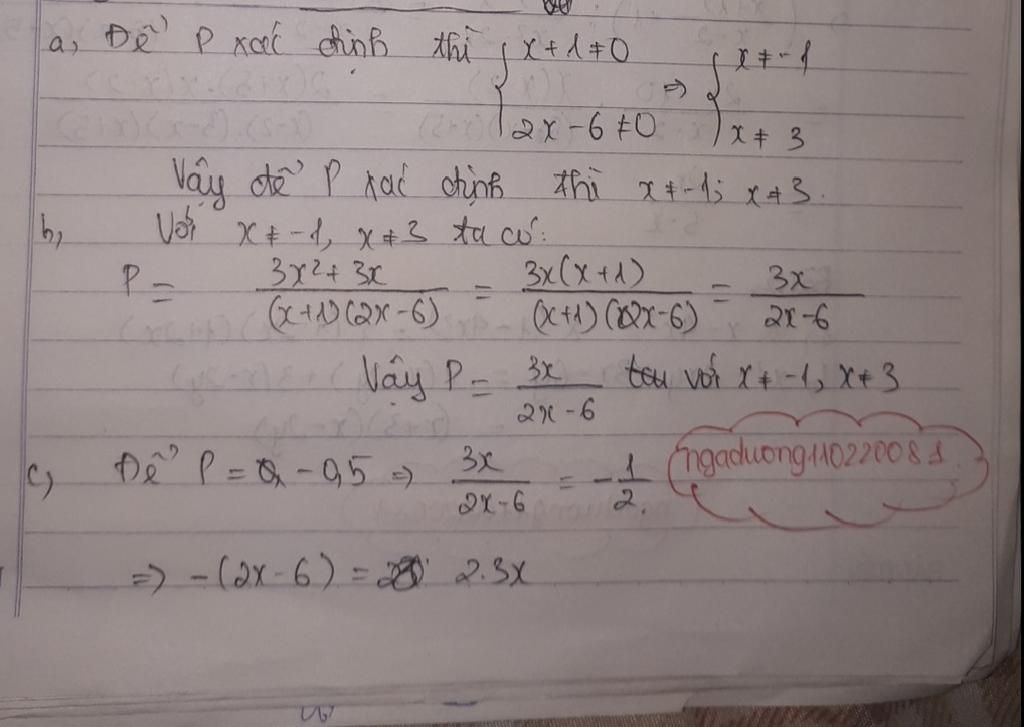 a, Để P xác định thì { x + 1 ≠ 0 => { x ≠ -1
2x - 6 ≠ 0 x ≠ 3
Vậy để P xác định thì x ≠ -1; x ≠ 3.
b, Với x ≠ -1, x ≠ 3 ta có:
P = (3x² + 3x)/((x+1)(2x-6)) = (3x(x+1))/((x+1)(2x-6)) = 3x/(2x-6)
Vậy P = 3x/(2x-6) với x ≠ -1, x ≠ 3
c, Để P = -0,5 => 3x/(2x-6) = -1/2
ngaduong11022008 1.
=> -(2x - 6) = 2.3x